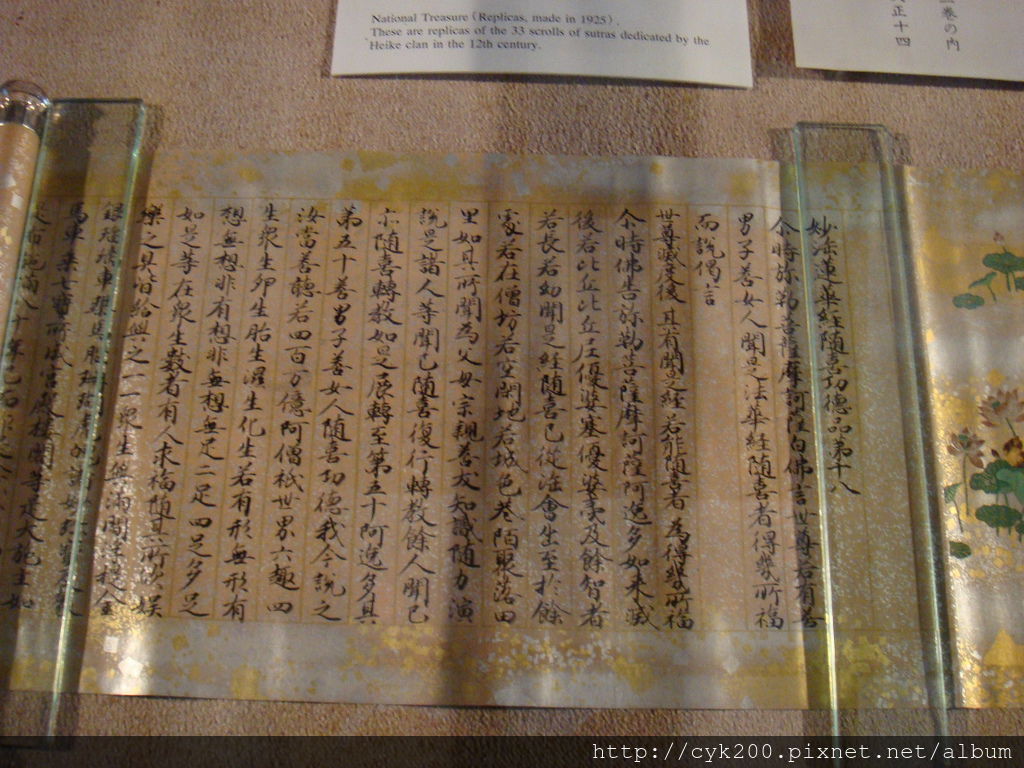 National Treasure (Replicas, made in 1925).
These are replicas of the 33 scrolls of sutras dedicated by the
Heike clan in the 12th century.
巻の内
正十四
妙法蓮華経随喜功徳品第十八
尒時弥勒菩薩摩訶薩白佛言世尊若有善
男子善女人聞是法華経随喜者得幾所福
而說偈言
世尊滅度後 其有聞是経 若能随喜者 為得幾所福
尒時佛告弥勒菩薩摩訶薩阿逸多如来滅
後若比丘比丘尼優婆塞優婆夷及餘智者
若長若幼聞是経随喜已従法會出至於餘
處若在僧坊若空閑地若城邑巷陌聚落田
里如其所聞為父母宗親善友知識随力演
說是諸人等聞已随喜復行轉教餘人聞已
亦随喜轉教如是展轉至第五十阿逸多其
第五十善男子善女人随喜功徳我今說之
汝當善聽若四百万億阿僧祇世界六趣四
生衆生卵生胎生濕生化生若有形無形有
想無想非有想非無想無足二足四足多足
如是等在衆生數者有人求福随其所欲娯
樂之具皆給與之一一衆生與満閻浮提金
銀琉璃車𤦲馬
馬車乗七寶所成宮殿樓閣等是大施主如
是布施満八十年已
http://cyk200.pixnet.net/album